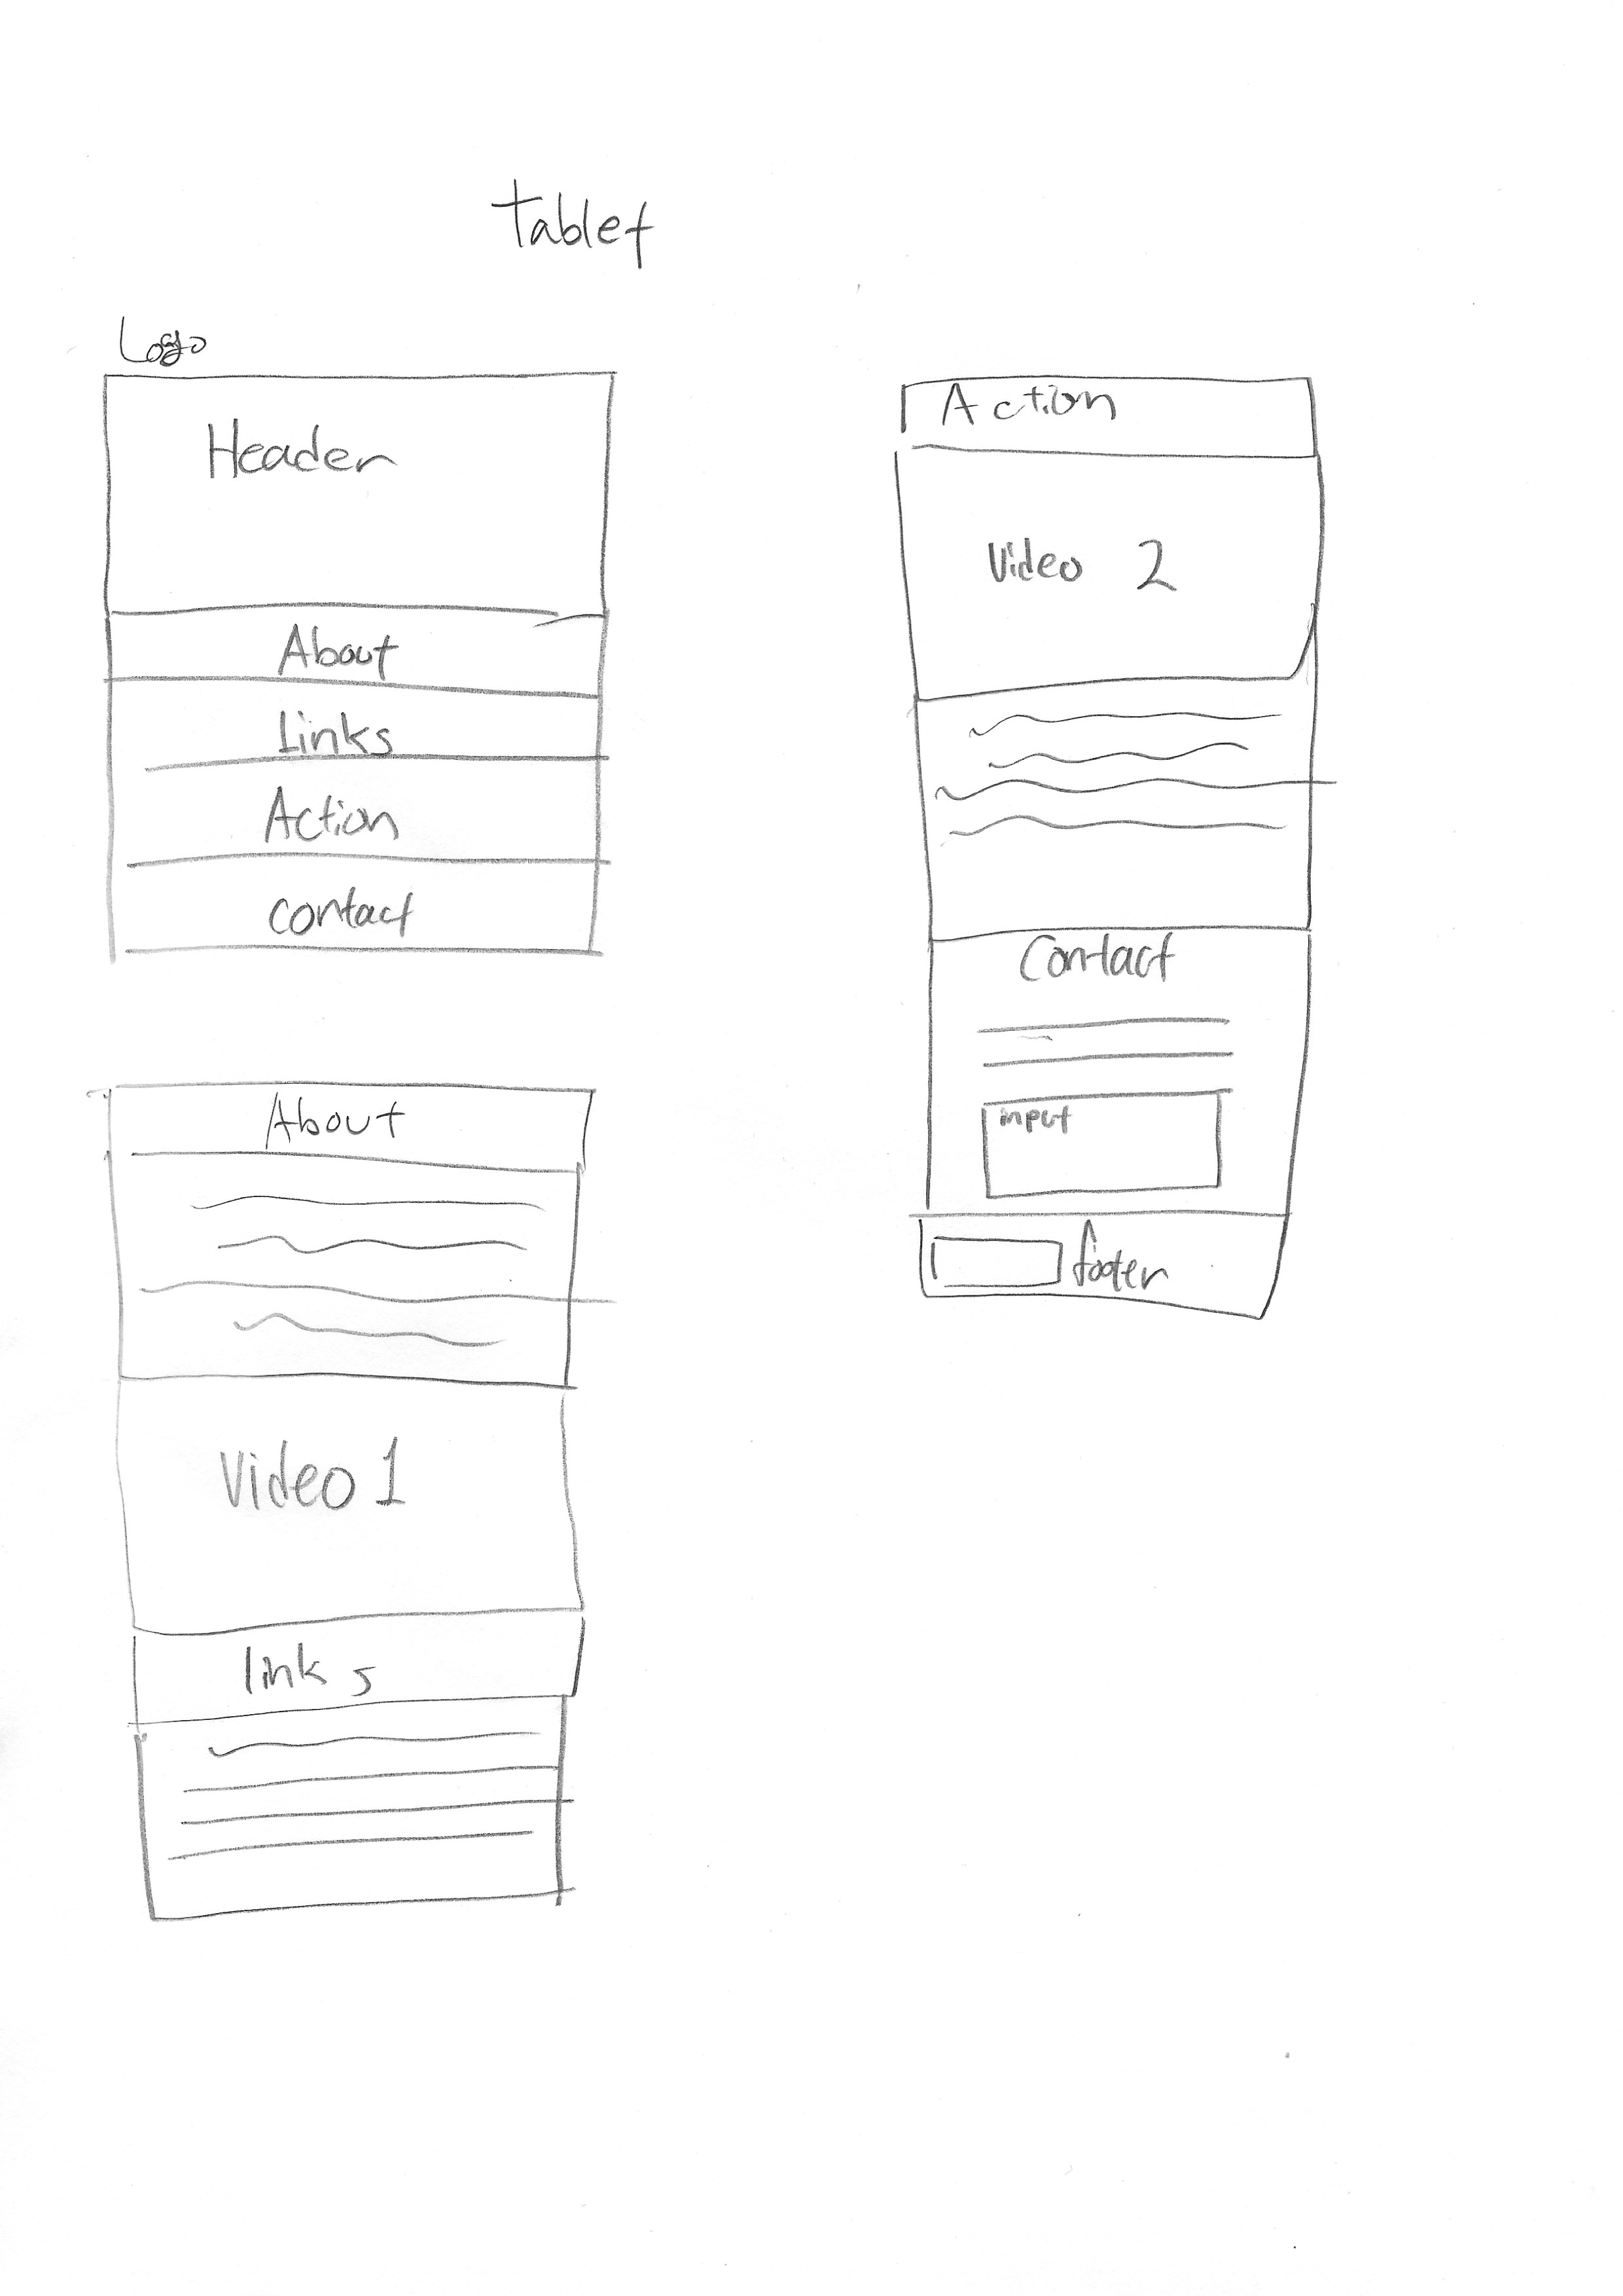 Tablet
Logo
Header
About
Links
Action
Contact
About
Video 1
links
Action
Video 2
Contact
input
footer